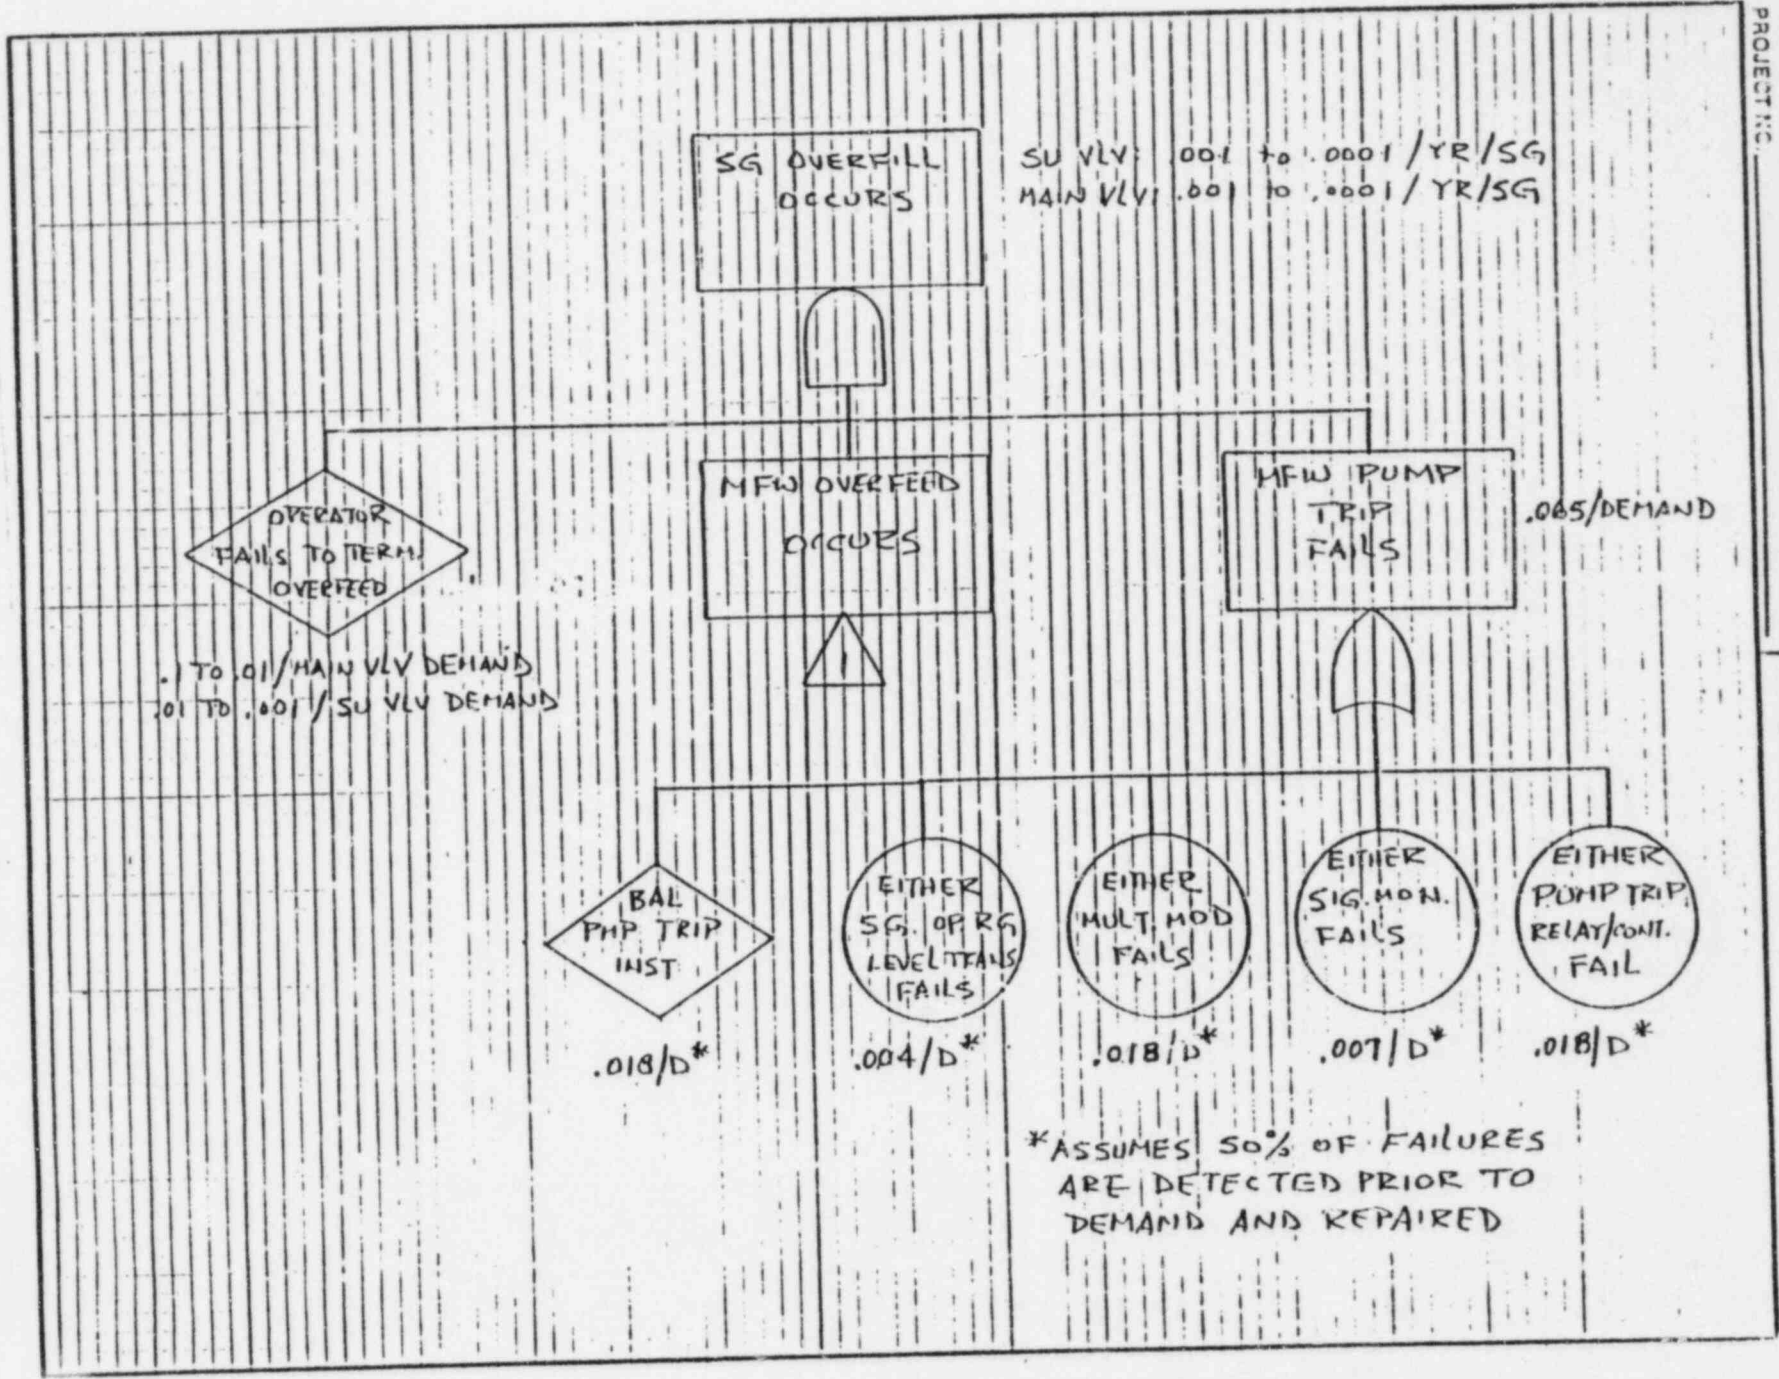 PROJECT NO.
SG OVERFILL
OCCURS
SU VLV: .001 to .0001 / YR / SG
MAIN VLV: .001 to .0001 / YR/SG
OPERATOR
FAILS TO TERM.
OVERFEED
.1 TO .01 / MAIN VLV DEMAND
.01 TO .001 / SU VLV DEMAND
MFW OVERFEED
OCCURS
1
MFW PUMP
TRIP
FAILS
.065/DEMAND
BAL
PMP TRIP
INST
.018/D*
EITHER
S.G. OP RG
LEVEL TRANS
FAILS
.004/D*
EITHER
MULT. MOD
FAILS
.018/D*
EITHER
SIG. MON.
FAILS
.007/D*
EITHER
PUMP TRIP
RELAY/CONT.
FAIL
.018/D*
*ASSUMES 50% OF FAILURES
ARE DETECTED PRIOR TO
DEMAND AND REPAIRED